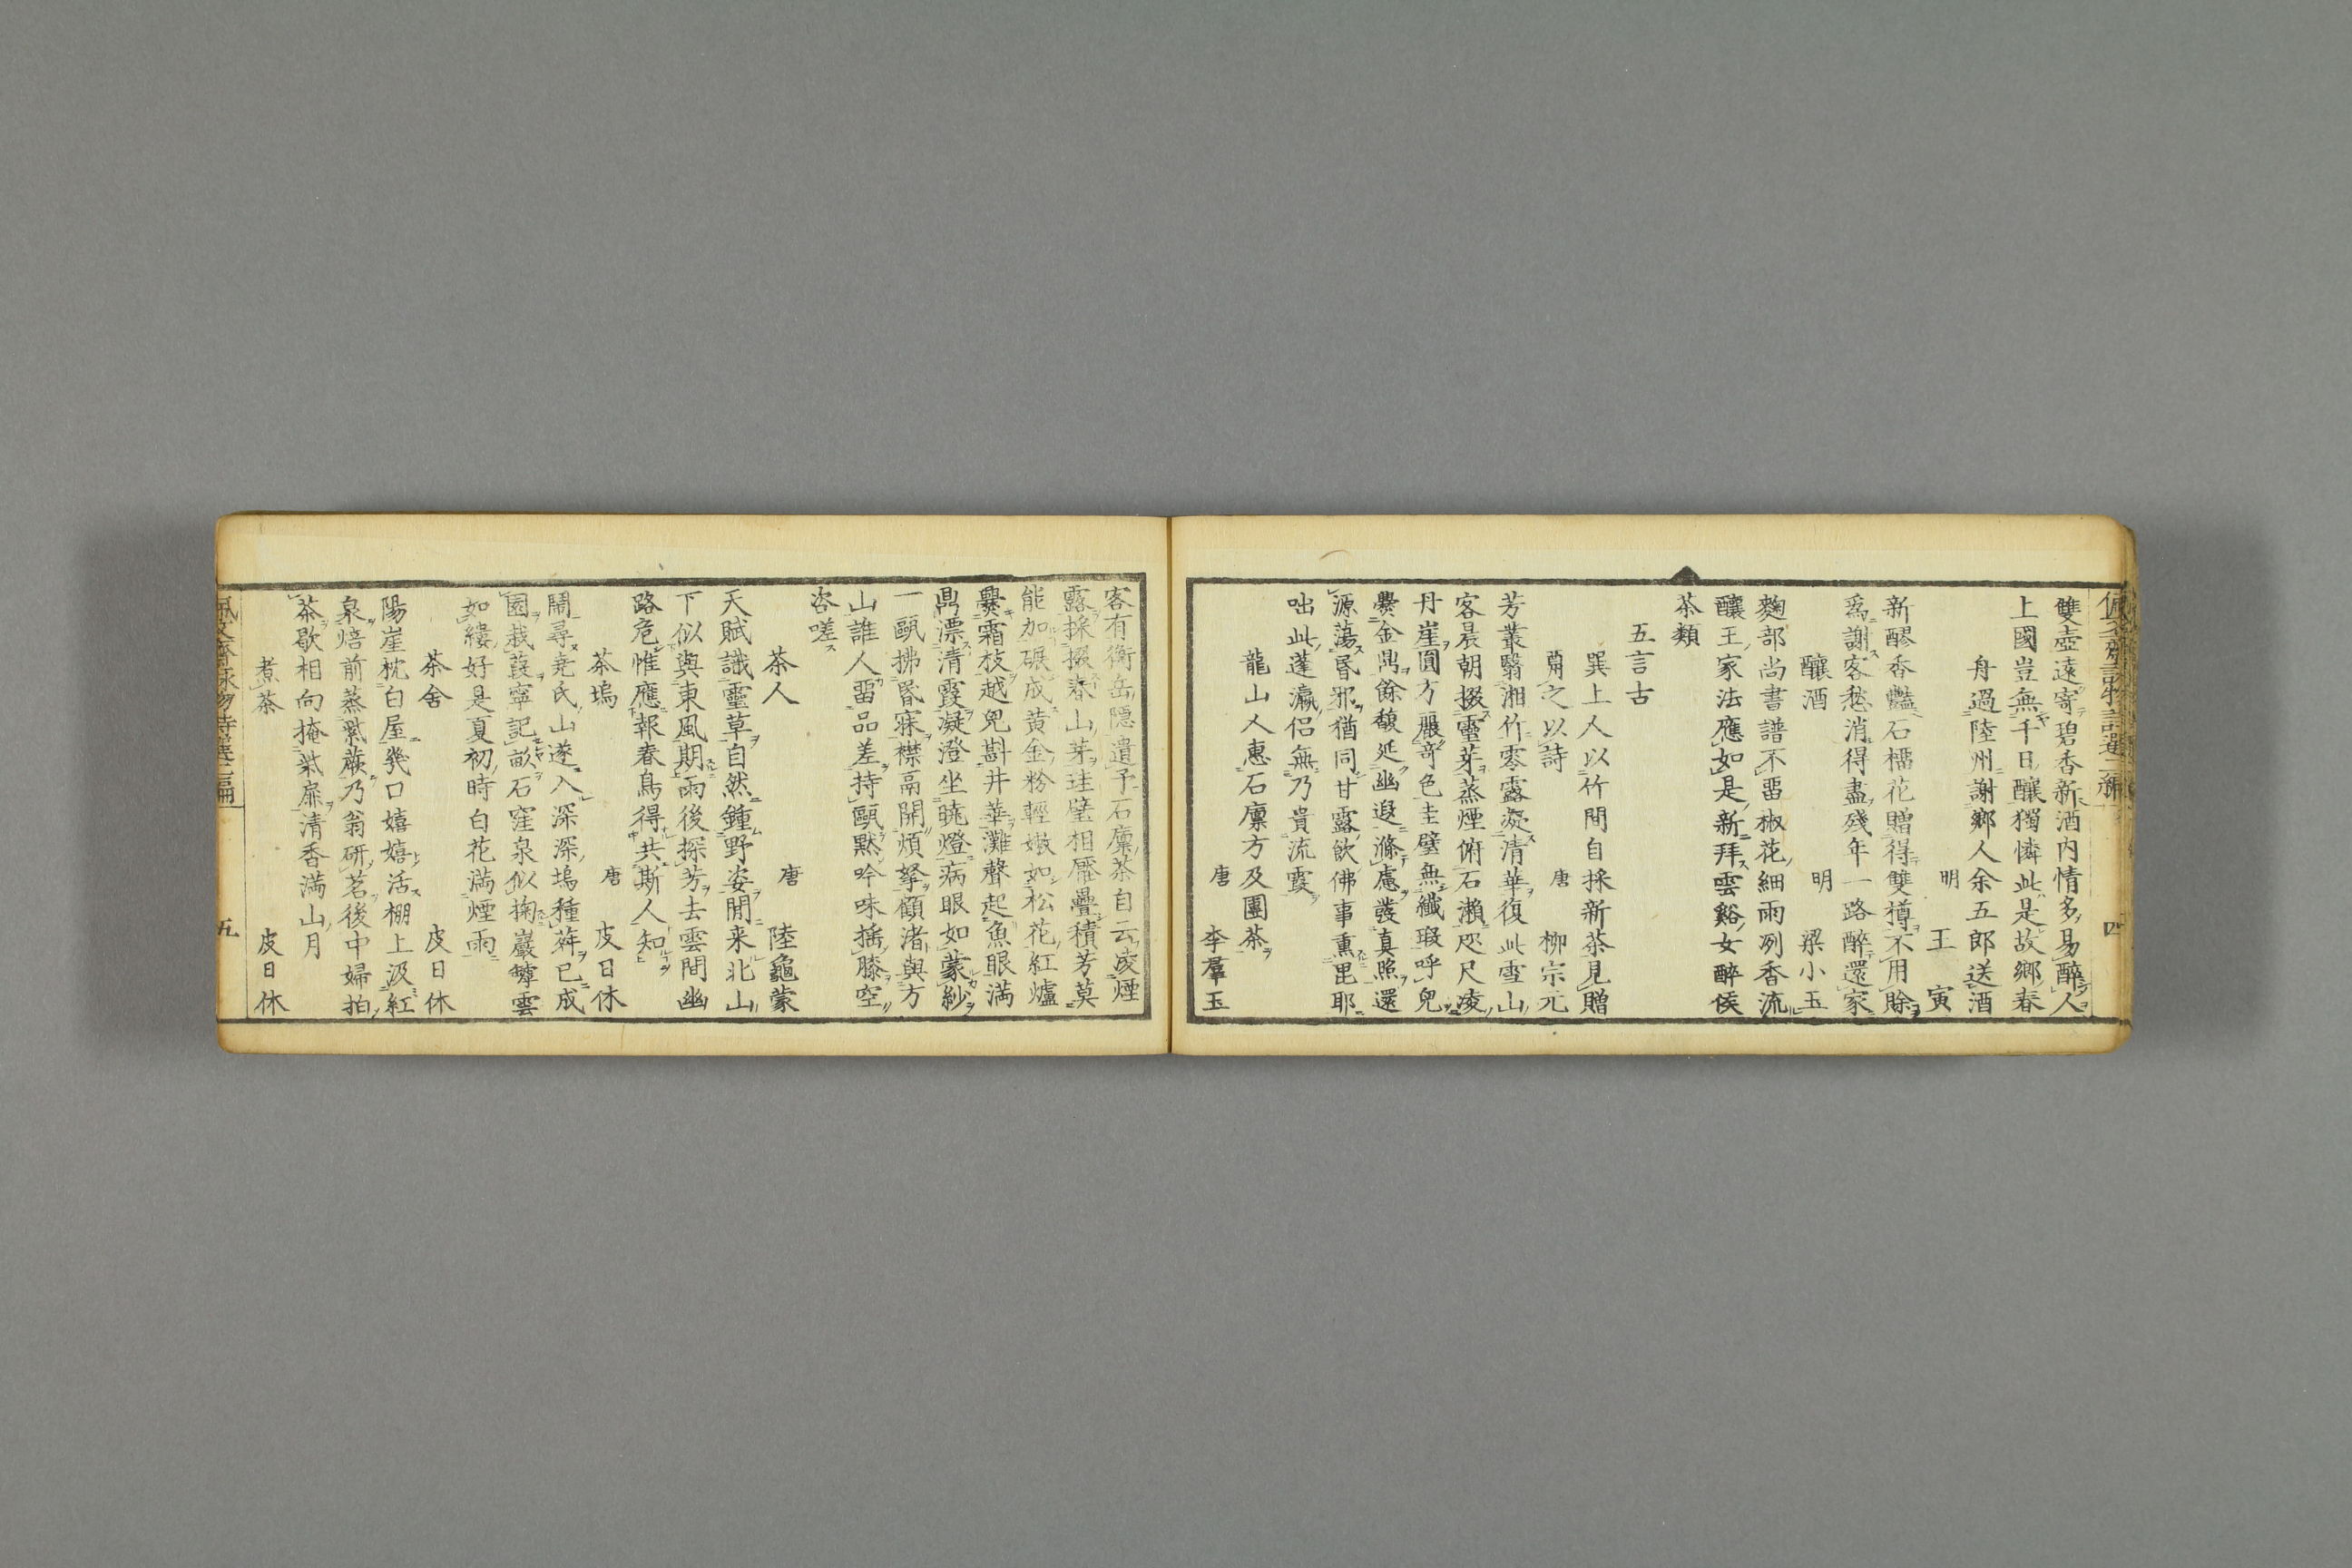 雙壺遠寄碧香新酒内情多易醉人
上國豈無千日釀獨憐此是故鄉春
舟過陸州謝鄉人余五郎送酒
明 王寅
新醪香豔石榴花贈得雙樽不用賖
爲謝客愁消得盡殘年一路醉還家
釀酒 明 梁小玉
麴部尚書譜不畱椒花細雨冽香流
釀王家法應如是新拜雲谿女醉侯
茶類
五言古
巽上人以竹間自採新茶見贈
酬之以詩 唐 柳宗元
芳叢翳湘竹零露凝清華復此雪山
客晨朝掇靈芽蒸煙俯石瀨咫尺凌
丹崖圓方麗竒色圭璧無纖瑕呼兒
爨金鼎餘馥延幽遐滌慮發真照還
源蕩昬邪猶同甘露飲佛事熏毘耶
咄此蓬瀛侶無乃貴流霞
龍山人惠石廩方及團茶
唐 李羣玉
客有衡岳隠遺予石廩茶自云凌煙
露採掇春山芽珪璧相壓疊積芳莫
能加碾成黄金粉輕嫩如松花紅爐
爨霜枝越兒斟井華灘聲起魚眼滿
鼎漂清霞凝澄坐曉燈病眼如蒙紗
一甌拂昬寐襟鬲開煩拏顧渚與方
山誰人畱品差持甌默吟味摇膝空
咨嗟
茶人 唐 陸龜蒙
天賦識靈草自然鍾野姿閒来北山
下似與東風期雨後探芳去雲間幽
路危惟應報春鳥得共斯人知
茶塢 唐 皮日休
閒尋尭氏山遂入深深塢種荈已成
園栽葭寧記畝石窪泉似掬巖罅雲
如縷好是夏初時白花滿煙雨
茶舍 皮日休
陽崖枕白屋幾口嬉嬉活棚上汲紅
泉焙前蒸紫蕨乃翁研茗後中婦拍
茶歇相向掩柴扉清香滿山月
煮茶 皮日休
佩文齋詠物詩選二編 五